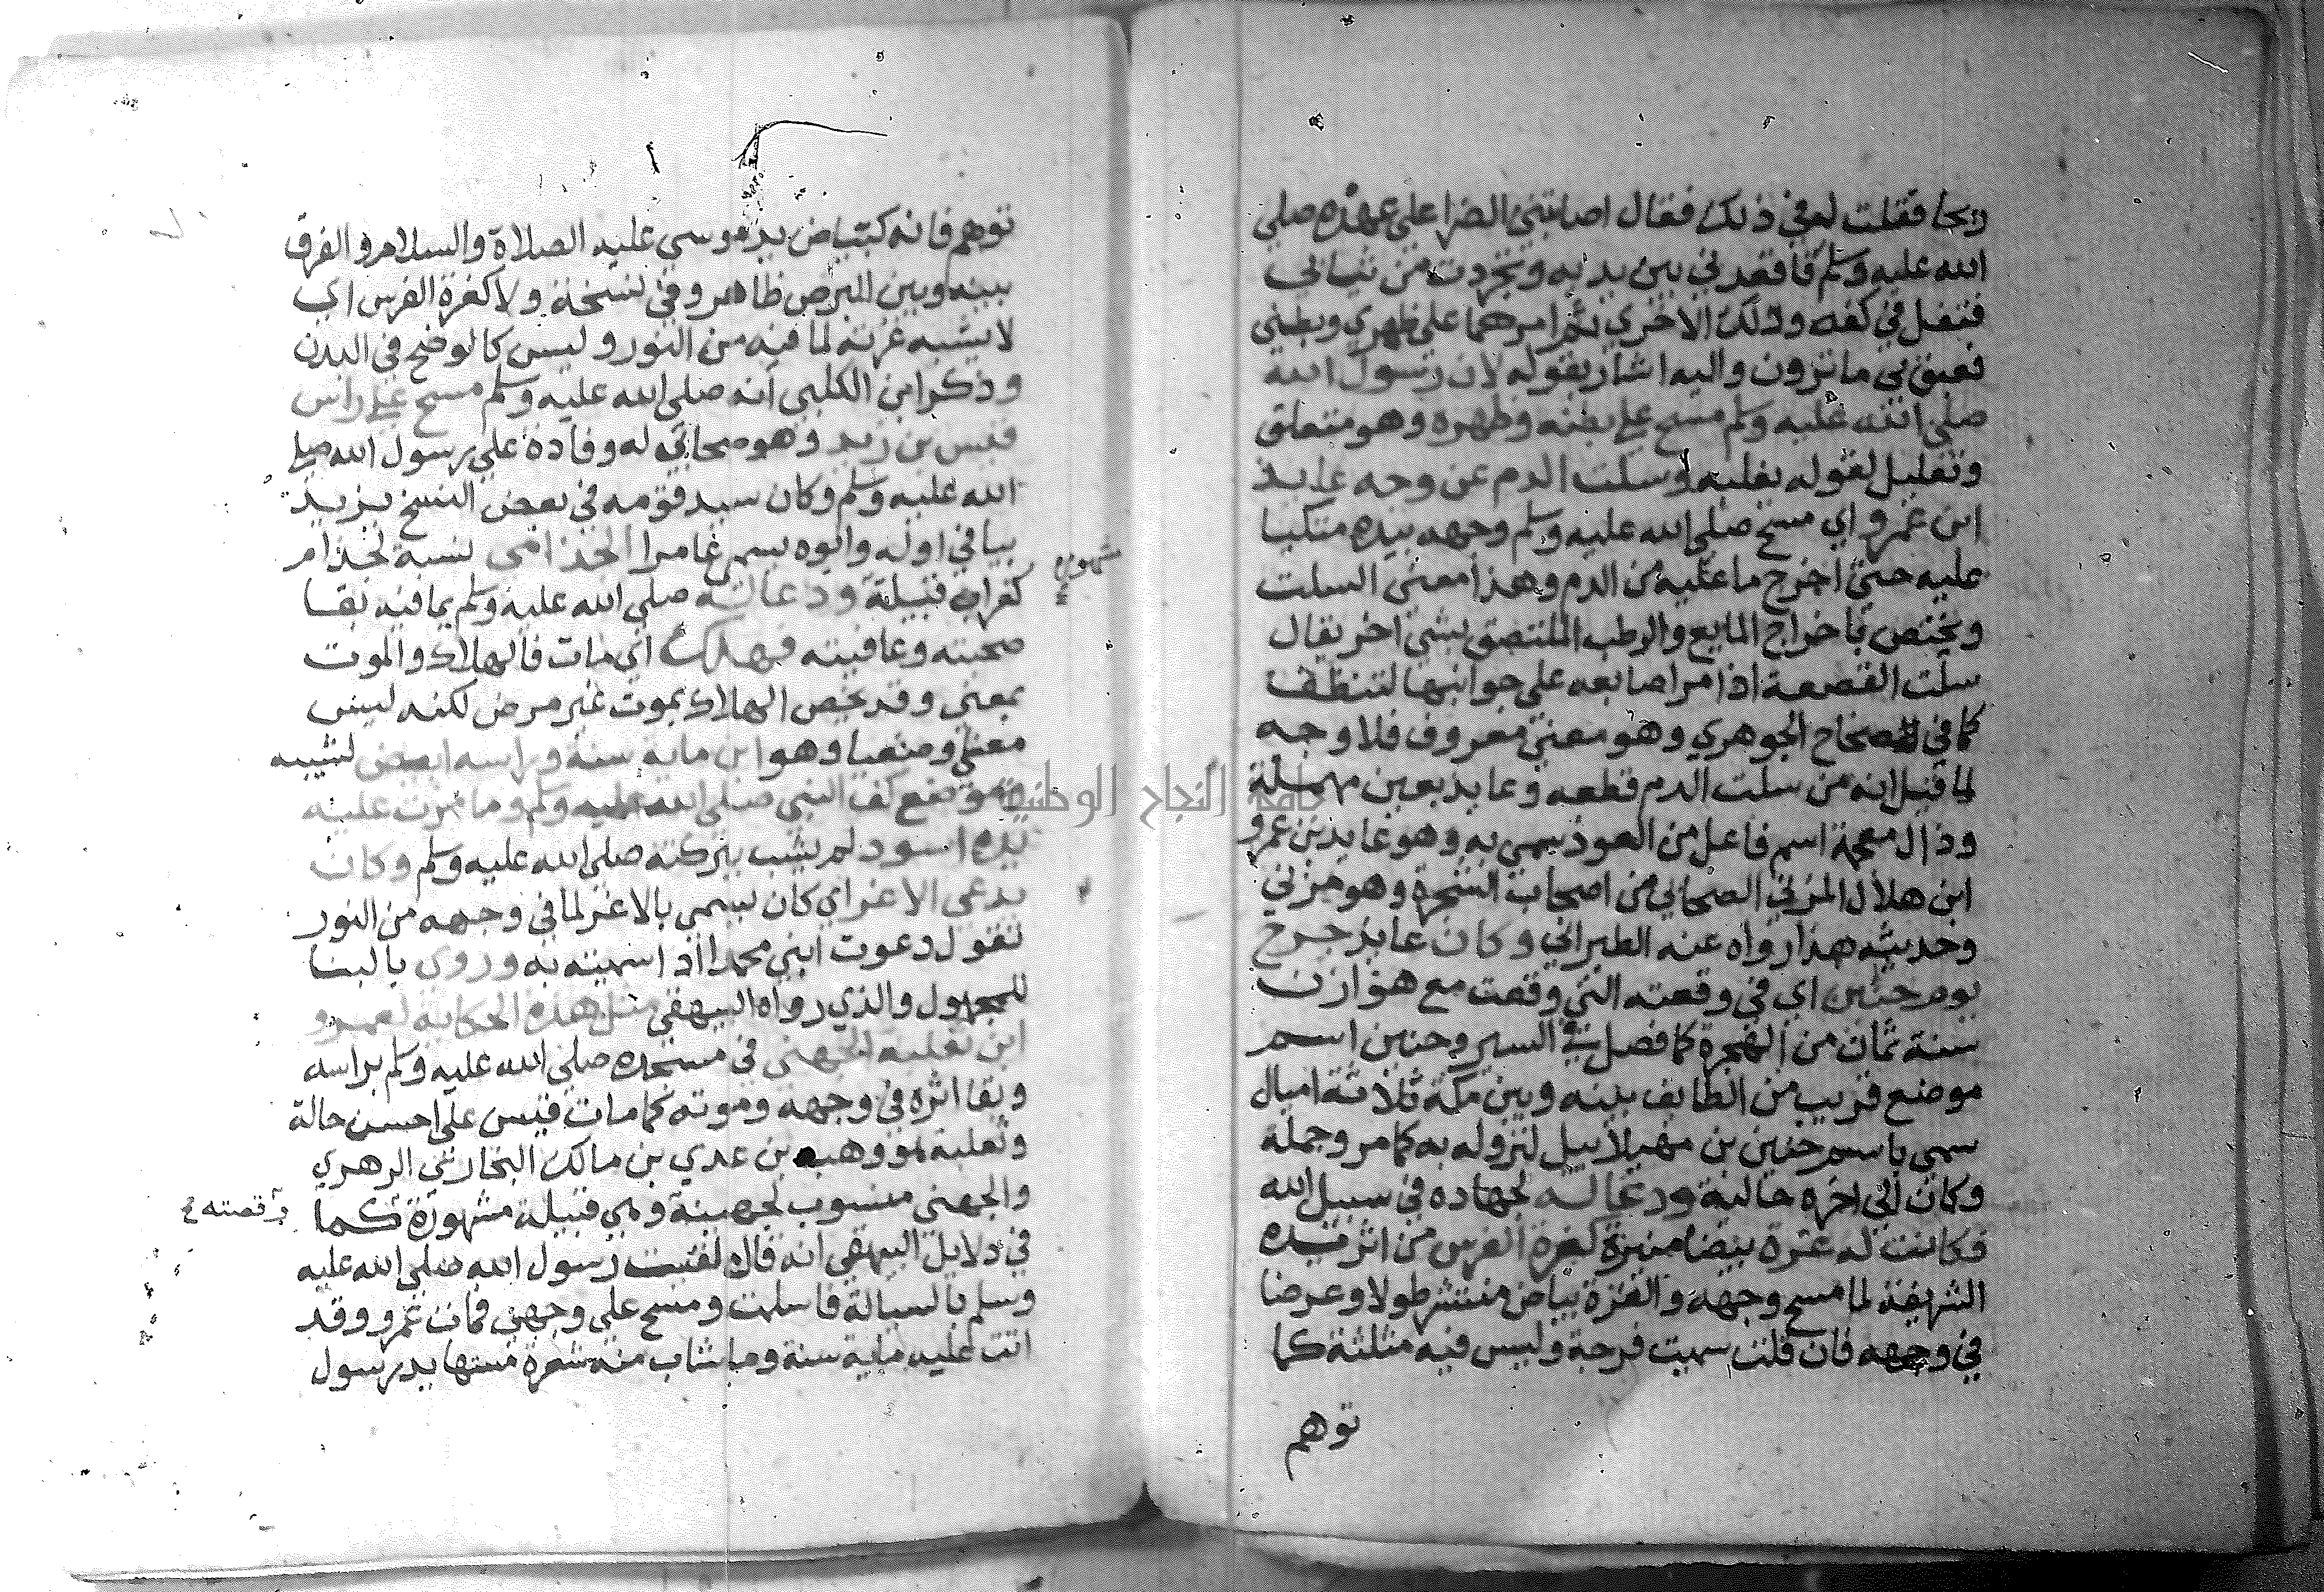 ريحا فقلت له في ذلك فقال اصابتني الضرا على عهده صلى
الله عليه وسلم فاقعدني بين يديه وتجردت من ثيابي
فتفل في كفه ودلك الاخري ثم امرهما على ظهري وبطني
فعبق بي ما ترون واليه اشار بقوله لان رسول الله
صلى الله عليه وسلم مسح على بطنه وظهره وهو متعلق
وتعليل لقوله يغلبه وسلت الدم عن وجه عايذ
ابن عمرو اي مسح صلى الله عليه وسلم وجهه بيده متكيا
عليه حتى اخرج ما عليه من الدم وهذا معنى السلت
ويختص باخراج المايع والرطب الملتصق بشي اخر يقال
سلت القصعة اذا مر اصابعه على جوانبها لتنظف
كما في الصحاح الجوهري وهو معنى معروف فلا وجه
لما قيل انه من سلت الدم قطعه وعايذ بعين مهملة
وذال معجمة اسم فاعل من العوذ سمي به وهو عايذ بن عمرو
ابن هلال المزني الصحابي من اصحاب الشجرة وهو مزني
وحديثه هذا رواه عنه الطبراني وكان عايذ جرح
يوم حنين اي في وقعته التي وقعت مع هوازن
سنة ثمان من الهجرة كما فصل في السير وحنين اسم
موضع قريب من الطايف بينه وبين مكة ثلاثة اميال
سمي باسم حنين بن مهيلاييل لنزوله به كما مر وجملة
وكان الى اخره حالية ودعا له لجهاده في سبيل الله
فكانت له غرة بيضا منيرة كغرة الفرس من اثر يده
الشريفة لما مسح وجهه والغرة بياض منتشر طولا وعرضا
في وجهه فان قلت سميت قرحة وليس فيه مثلثة كما
توهم
توهم فانه كبياض يد موسى عليه الصلاة والسلام والفرق
بينه وبين البرص ظاهر وفي نسخة ولا كغرة الفرس اي
لا يشبه غرته لما فيه من النور وليس كالوضح في البدن
وذكر ابن الكلبي أنه صلى الله عليه وسلم مسح على راس
قيس بن زيد وهو صحابي له وفادة على رسول الله صلى
الله عليه وسلم وكان سيد قومه في بعض النسخ يزيد
بيا في اوله وابوه يسمى عامرا الجذامي نسبة لجذام
كغراب قبيلة ودعا له صلى الله عليه وسلم بما فيه بقا
مشهورة
صحبته وعافيته فهلك اي مات فالهلاك والموت
بمعنى وقد يخص الهلاك بموت غير مرض لكنه ليس
معنى وضعيا وهو ابن ماية سنة وراسه ابيض لشيبه
وموضع كف النبي صلى الله عليه وسلم وما مرت عليه
يده اسود لم يشب ببركته صلى الله عليه وسلم وكان
يدعى الاغر اي كان يسمى بالاغر لما في وجهه من النور
تقول دعوت ابني محمدا اذا سميته به وروي بالبنا
للمجهول والذي رواه البيهقي مثل هذه الحكاية لعمرو
ابن ثعلبة الجهني في مسحه صلى الله عليه وسلم براسه
وبقا اثره في وجهه وموته كما مات قيس على احسن حالة
وثعلبة هو وهب بن عدي بن مالك الزهري
والجهني منسوب لجهينة وهي قبيلة مشهورة كما
وقصته
في دلايل البيهقي انه قال لقيت رسول الله صلى الله عليه
وسلم بالسيالة فاسلمت ومسح على وجهي فمات عمرو وقد
اتت عليه ماية سنة وما شاب منه شعرة مستها يد رسول
جامعة النجاح الوطنية